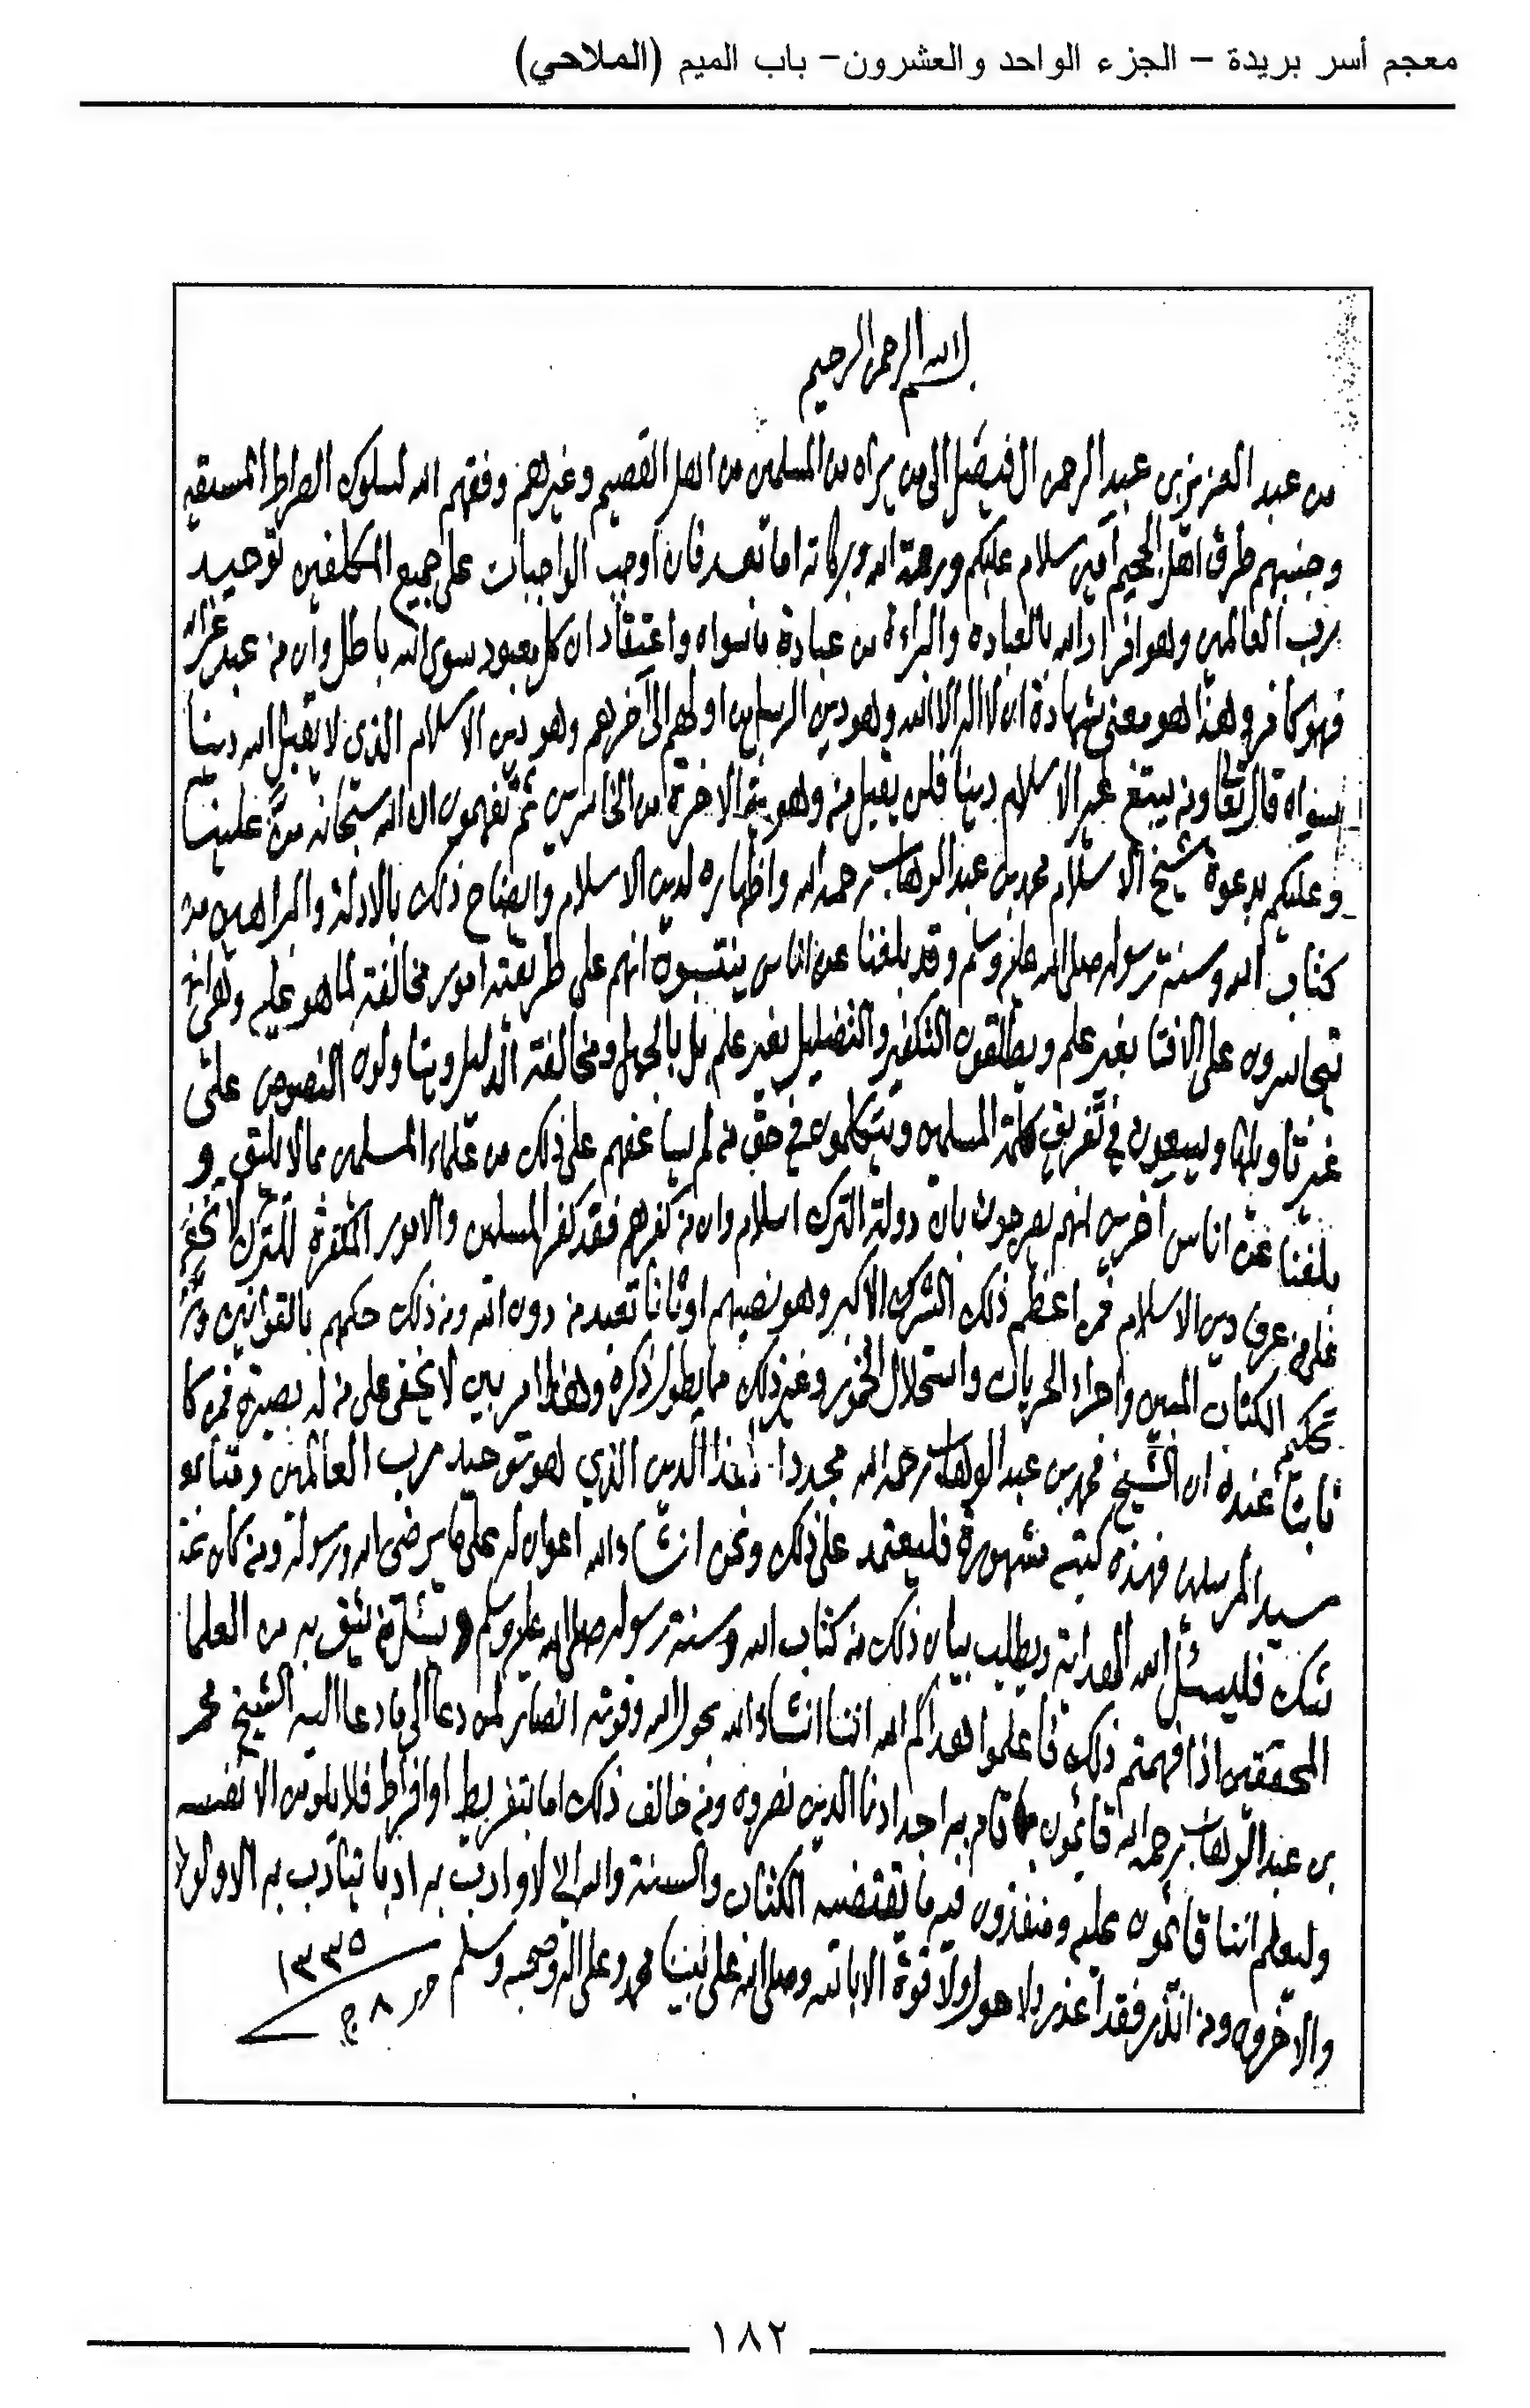 معجم أسر بريدة – الجزء الواحد والعشرون– باب الميم (الملاحي)
بسم الله الرحمن الرحيم
من عبد العزيز بن عبد الرحمن ال فيصل الى من يراه من المسلمين من اهل القصيم وغيرهم وفقهم الله لسلوك الصراط المستقيم
وجنبهم طرق اهل الجحيم آمين سلام عليكم ورحمة الله وبركاته اما بعد فان اوجب الواجبات على جميع المكلفين توحيد
رب العالمين وهو افراد الله بالعبادة والبراءة من عبادة ما سواه واعتقاد ان كل معبود سوى الله باطل وان من عبد غير الله
فهو كافر وهذا هو معنى شهادة ان لا اله الا الله وهو دين الرسل من اولهم الى آخرهم وهو دين الاسلام الذي لا يقبل الله دينا
سواه قال تعالى ومن يبتغ غير الاسلام دينا فلن يقبل منه وهو في الاخرة من الخاسرين ثم تفهمون ان الله سبحانه منّ علينا
وعليكم بدعوة شيخ الاسلام محمد بن عبد الوهاب رحمه الله واظهاره لدين الاسلام وايضاح ذلك بالادلة والبراهين من
كتاب الله وسنة رسوله صلى الله عليه وسلم وقد بلغنا عن اناس ينتسبون انهم على طريقته امور مخالفة لما هو عليه وهي انهم
يتجاسرون على الافتا بغير علم ويطلقون التكفير والتضليل بغير علم بل بالجهل ومخالفة الدليل ويتاولون النصوص على
غير تاويلها ويسعون في تفريق كلمة المسلمين ويتكلمون في حق من لم يساعفهم على ذلك من علماء المسلمين بما لا يليق و
بلغنا عن اناس اخرين انهم يصرحون بان دولة الترك اسلام وان من كفرهم فقد كفر المسلمين والامور المكفرة للترك لا تخفى
على من عرف دين الاسلام فمن اعظم ذلك الشرك الاكبر وهو نصبهم اوثانا تعبد من دون الله ومن ذلك حكمهم بالقوانين
تحكيم الكتاب المبين واجراء الحريات واستحلال الخمور وغير ذلك مما يطول ذكره وهذا امر بين لا يخفى على من له بصيرة فمن كا
ثابتا عنده ان الشيخ محمد بن عبد الوهاب رحمه الله مجددا لهذا الدين الذي هو توحيد رب العالمين ومتابعة
سيد المرسلين فهذه كتبه مشهورة فليعتمد على ذلك ونحن انشاء الله اعوان له على ما يرضي الله ورسوله ومن كان عنده
شك فليسئل الله الهداية ويطلب بيان ذلك من كتاب الله وسنة رسوله صلى الله عليه وسلم ويسئل من يثق به من العلما
المحققين اذا فهمتم ذلك فاعلموا هداكم الله اننا انشاء الله بحول الله وقوته انصار لمن دعا الى ما دعا اليه الشيخ محمد
بن عبد الوهاب رحمه الله قائمون بما قام به اجدادنا الذين نصروه ومن خالف ذلك اما بتفريط او افراط فلا يلومن الا نفسه
وليعلم اننا قائمون عليه ومنفذون فيه ما يقتضيه الكتاب والسنة والله لاوادب به ادبا يتادب به الاولون
والاخرون ومن انذر فقد اعذر ولا حول ولا قوة الا بالله وصلى الله على نبينا محمد وعلى اله وصحبه وسلم حرر ٨ ج
١٣٣٥
١٨٢